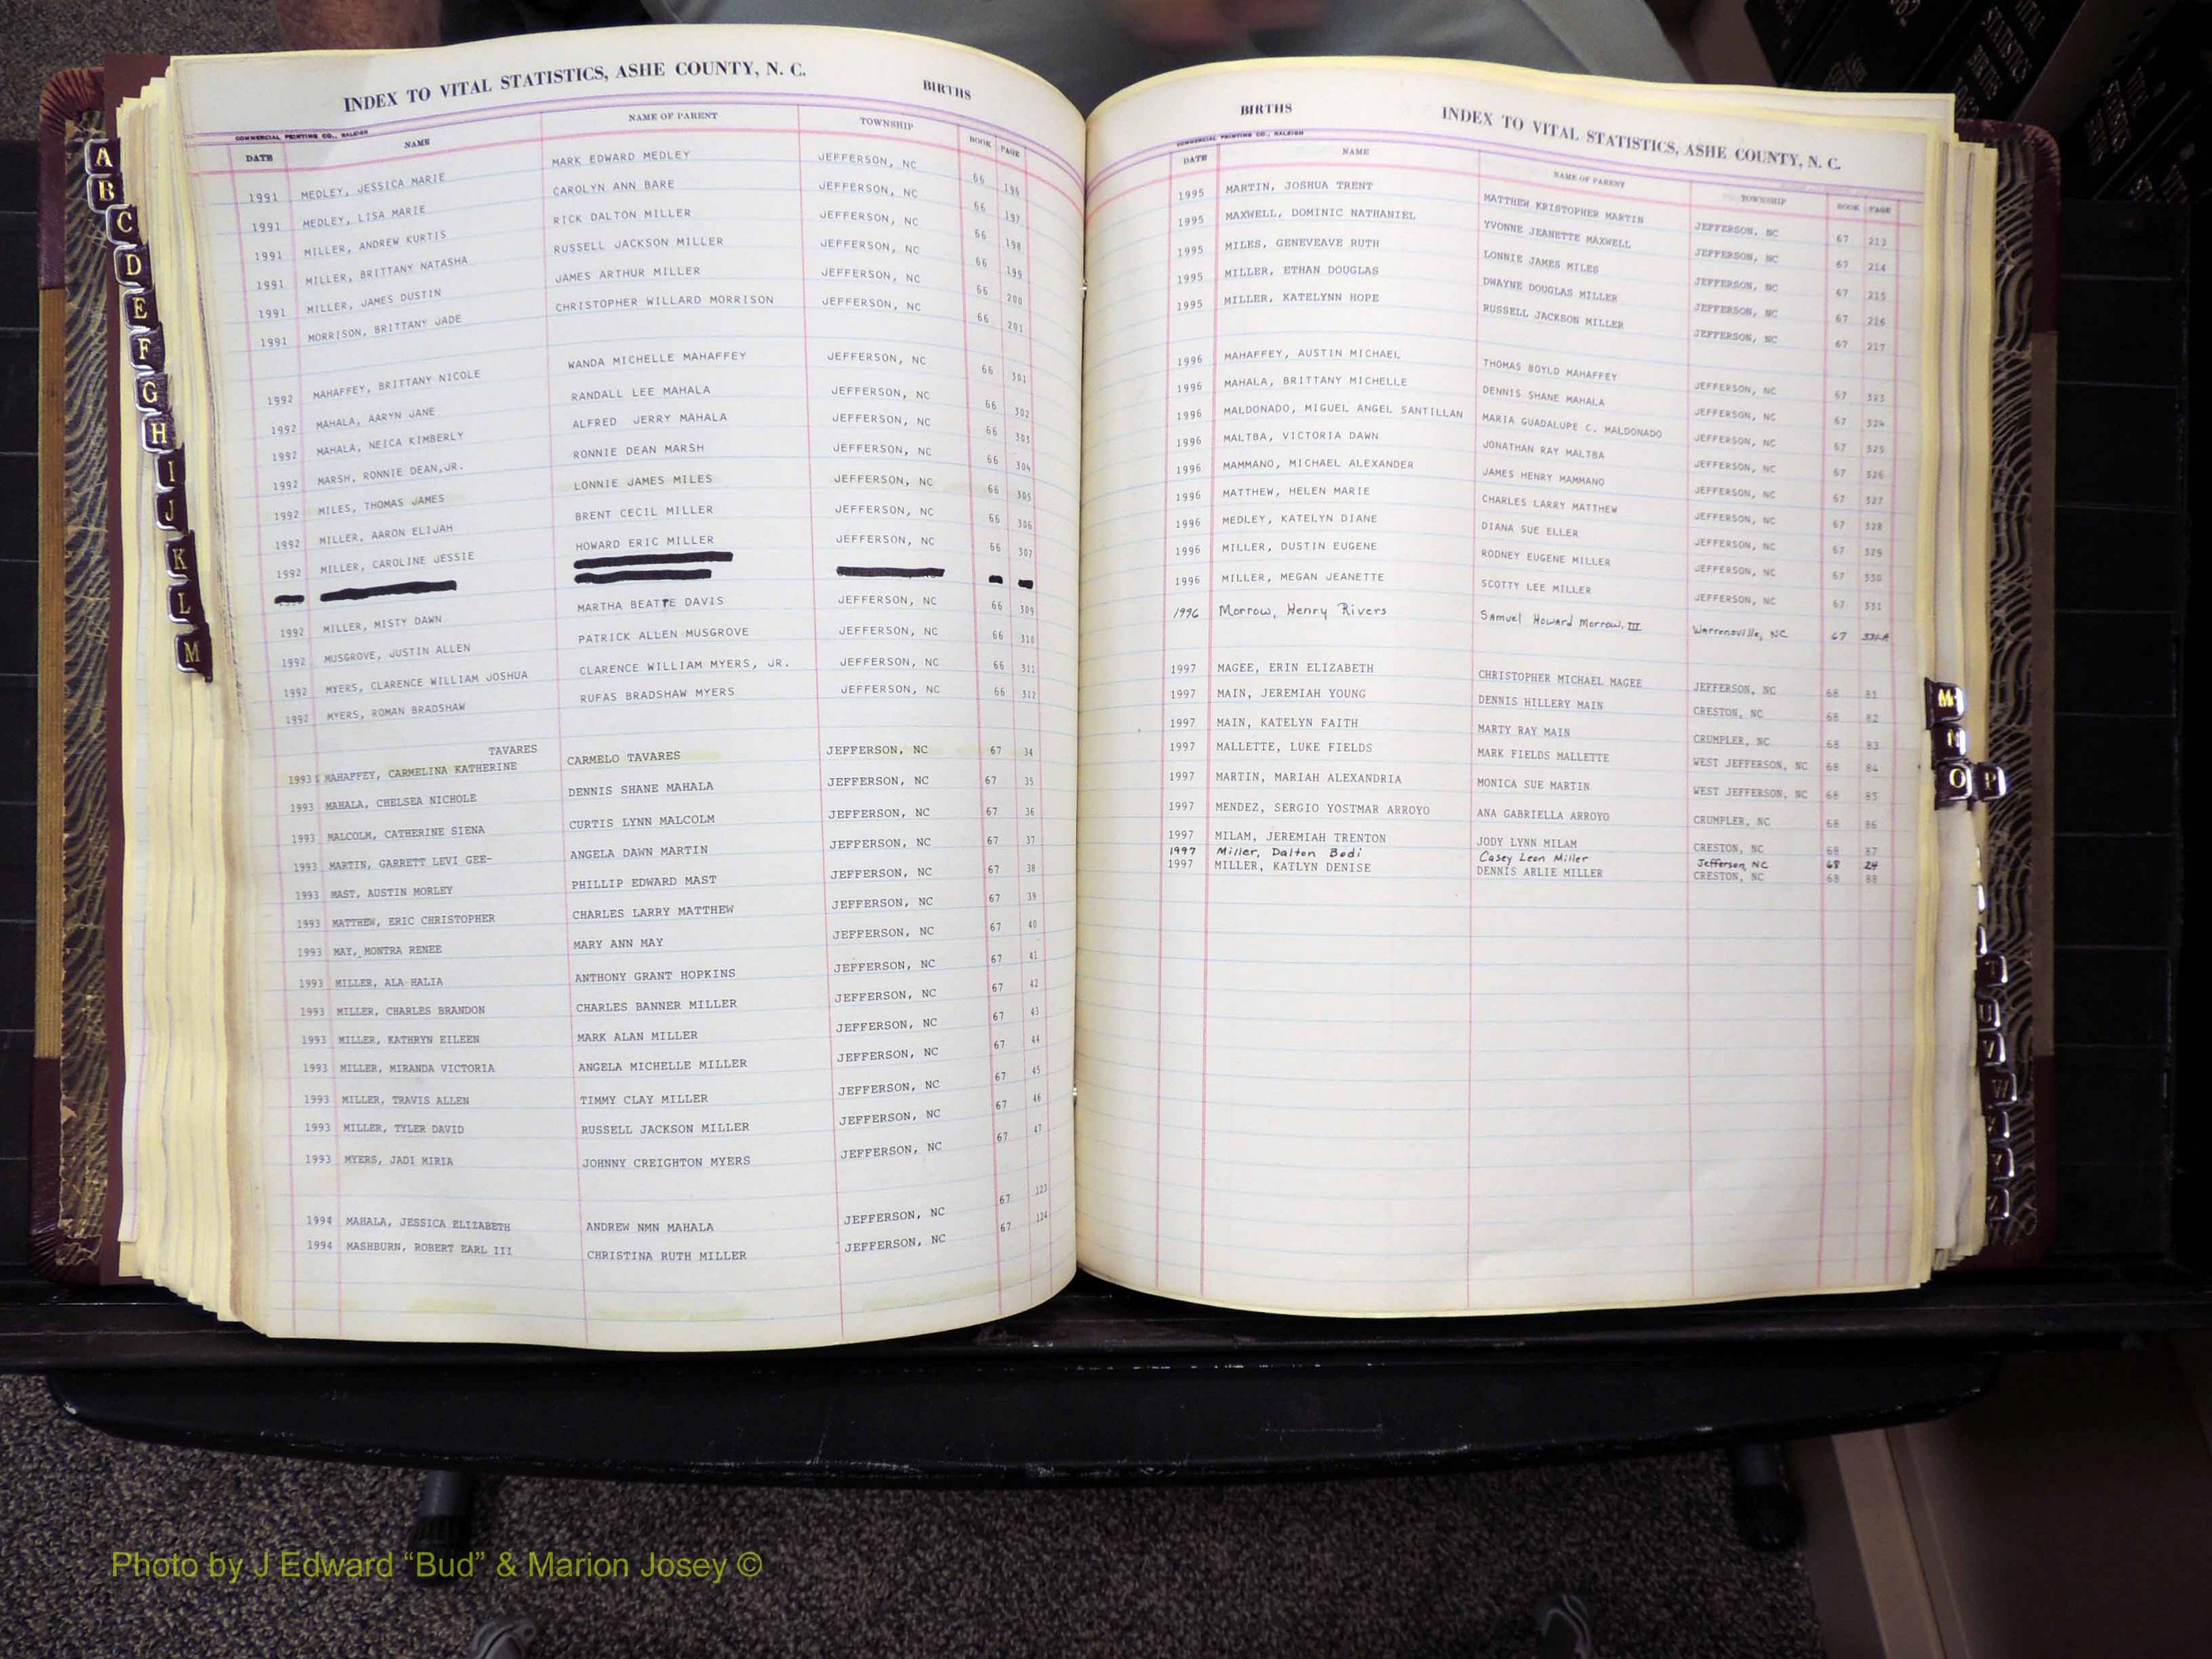 INDEX TO VITAL STATISTICS, ASHE COUNTY, N. C. BIRTHS
COMMERCIAL PRINTING CO., RALEIGH
DATE NAME NAME OF PARENT TOWNSHIP BOOK PAGE
1991 MEDLEY, JESSICA MARIE MARK EDWARD MEDLEY JEFFERSON, NC 66 196
1991 MEDLEY, LISA MARIE CAROLYN ANN BARE JEFFERSON, NC 66 197
1991 MILLER, ANDREW KURTIS RICK DALTON MILLER JEFFERSON, NC 66 198
1991 MILLER, BRITTANY NATASHA RUSSELL JACKSON MILLER JEFFERSON, NC 66 199
1991 MILLER, JAMES DUSTIN JAMES ARTHUR MILLER JEFFERSON, NC 66 200
1991 MORRISON, BRITTANY JADE CHRISTOPHER WILLARD MORRISON JEFFERSON, NC 66 201
1992 MAHAFFEY, BRITTANY NICOLE WANDA MICHELLE MAHAFFEY JEFFERSON, NC 66 301
1992 MAHALA, AARYN JANE RANDALL LEE MAHALA JEFFERSON, NC 66 302
1992 MAHALA, NEICA KIMBERLY ALFRED JERRY MAHALA JEFFERSON, NC 66 303
1992 MARSH, RONNIE DEAN,JR. RONNIE DEAN MARSH JEFFERSON, NC 66 304
1992 MILES, THOMAS JAMES LONNIE JAMES MILES JEFFERSON, NC 66 305
1992 MILLER, AARON ELIJAH BRENT CECIL MILLER JEFFERSON, NC 66 306
1992 MILLER, CAROLINE JESSIE HOWARD ERIC MILLER JEFFERSON, NC 66 307
1992 MILLER, MISTY DAWN MARTHA BEATTE DAVIS JEFFERSON, NC 66 309
1992 MUSGROVE, JUSTIN ALLEN PATRICK ALLEN MUSGROVE JEFFERSON, NC 66 310
1992 MYERS, CLARENCE WILLIAM JOSHUA CLARENCE WILLIAM MYERS, JR. JEFFERSON, NC 66 311
1992 MYERS, ROMAN BRADSHAW RUFAS BRADSHAW MYERS JEFFERSON, NC 66 312
TAVARES
1993 MAHAFFEY, CARMELINA KATHERINE CARMELO TAVARES JEFFERSON, NC 67 34
1993 MAHALA, CHELSEA NICHOLE DENNIS SHANE MAHALA JEFFERSON, NC 67 35
1993 MALCOLM, CATHERINE SIENA CURTIS LYNN MALCOLM JEFFERSON, NC 67 36
1993 MARTIN, GARRETT LEVI GEE- ANGELA DAWN MARTIN JEFFERSON, NC 67 37
1993 MAST, AUSTIN MORLEY PHILLIP EDWARD MAST JEFFERSON, NC 67 38
1993 MATTHEW, ERIC CHRISTOPHER CHARLES LARRY MATTHEW JEFFERSON, NC 67 39
1993 MAY, MONTRA RENEE MARY ANN MAY JEFFERSON, NC 67 40
1993 MILLER, ALA HALIA ANTHONY GRANT HOPKINS JEFFERSON, NC 67 41
1993 MILLER, CHARLES BRANDON CHARLES BANNER MILLER JEFFERSON, NC 67 42
1993 MILLER, KATHRYN EILEEN MARK ALAN MILLER JEFFERSON, NC 67 43
1993 MILLER, MIRANDA VICTORIA ANGELA MICHELLE MILLER JEFFERSON, NC 67 44
1993 MILLER, TRAVIS ALLEN TIMMY CLAY MILLER JEFFERSON, NC 67 45
1993 MILLER, TYLER DAVID RUSSELL JACKSON MILLER JEFFERSON, NC 67 46
1993 MYERS, JADI MIRIA JOHNNY CREIGHTON MYERS JEFFERSON, NC 67 47
1994 MAHALA, JESSICA ELIZABETH ANDREW NMN MAHALA JEFFERSON, NC 67 123
1994 MASHBURN, ROBERT EARL III CHRISTINA RUTH MILLER JEFFERSON, NC 67 124
A
B
C
D
E
F
G
H
I
J
K
L
M
BIRTHS INDEX TO VITAL STATISTICS, ASHE COUNTY, N. C.
COMMERCIAL PRINTING CO., RALEIGH
DATE NAME NAME OF PARENT TOWNSHIP BOOK PAGE
1995 MARTIN, JOSHUA TRENT MATTHEW KRISTOPHER MARTIN JEFFERSON, NC 67 213
1995 MAXWELL, DOMINIC NATHANIEL YVONNE JEANETTE MAXWELL JEFFERSON, NC 67 214
1995 MILES, GENEVEAVE RUTH LONNIE JAMES MILES JEFFERSON, NC 67 215
1995 MILLER, ETHAN DOUGLAS DWAYNE DOUGLAS MILLER JEFFERSON, NC 67 216
1995 MILLER, KATELYNN HOPE RUSSELL JACKSON MILLER JEFFERSON, NC 67 217
1996 MAHAFFEY, AUSTIN MICHAEL THOMAS BOYLD MAHAFFEY JEFFERSON, NC 67 323
1996 MAHALA, BRITTANY MICHELLE DENNIS SHANE MAHALA JEFFERSON, NC 67 324
1996 MALDONADO, MIGUEL ANGEL SANTILLAN MARIA GUADALUPE C. MALDONADO JEFFERSON, NC 67 325
1996 MALTBA, VICTORIA DAWN JONATHAN RAY MALTBA JEFFERSON, NC 67 326
1996 MAMMANO, MICHAEL ALEXANDER JAMES HENRY MAMMANO JEFFERSON, NC 67 327
1996 MATTHEW, HELEN MARIE CHARLES LARRY MATTHEW JEFFERSON, NC 67 328
1996 MEDLEY, KATELYN DIANE DIANA SUE ELLER JEFFERSON, NC 67 329
1996 MILLER, DUSTIN EUGENE RODNEY EUGENE MILLER JEFFERSON, NC 67 330
1996 MILLER, MEGAN JEANETTE SCOTTY LEE MILLER JEFFERSON, NC 67 331
1996 Morrow, Henry Rivers Samuel Howard Morrow, III Warrensville, NC 67
1997 MAGEE, ERIN ELIZABETH CHRISTOPHER MICHAEL MAGEE JEFFERSON, NC 68 81
1997 MAIN, JEREMIAH YOUNG DENNIS HILLERY MAIN CRESTON, NC 68 82
1997 MAIN, KATELYN FAITH MARTY RAY MAIN CRUMPLER, NC 68 83
1997 MALLETTE, LUKE FIELDS MARK FIELDS MALLETTE WEST JEFFERSON, NC 68 84
1997 MARTIN, MARIAH ALEXANDRIA MONICA SUE MARTIN WEST JEFFERSON, NC 68 85
1997 MENDEZ, SERGIO YOSTMAR ARROYO ANA GABRIELLA ARROYO CRUMPLER, NC 68 86
1997 MILAM, JEREMIAH TRENTON JODY LYNN MILAM CRESTON, NC 68 87
1997 Miller, Dalton Bodi Casey Leon Miller Jefferson, NC 68 24
1997 MILLER, KATLYN DENISE DENNIS ARLIE MILLER CRESTON, NC 68 88
M
N
O P
T
U
V
W
VITAL
STATISTICS
Photo by J Edward “Bud” & Marion Josey ©